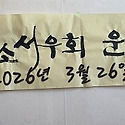 소서우회 운
2026년 3월 26일